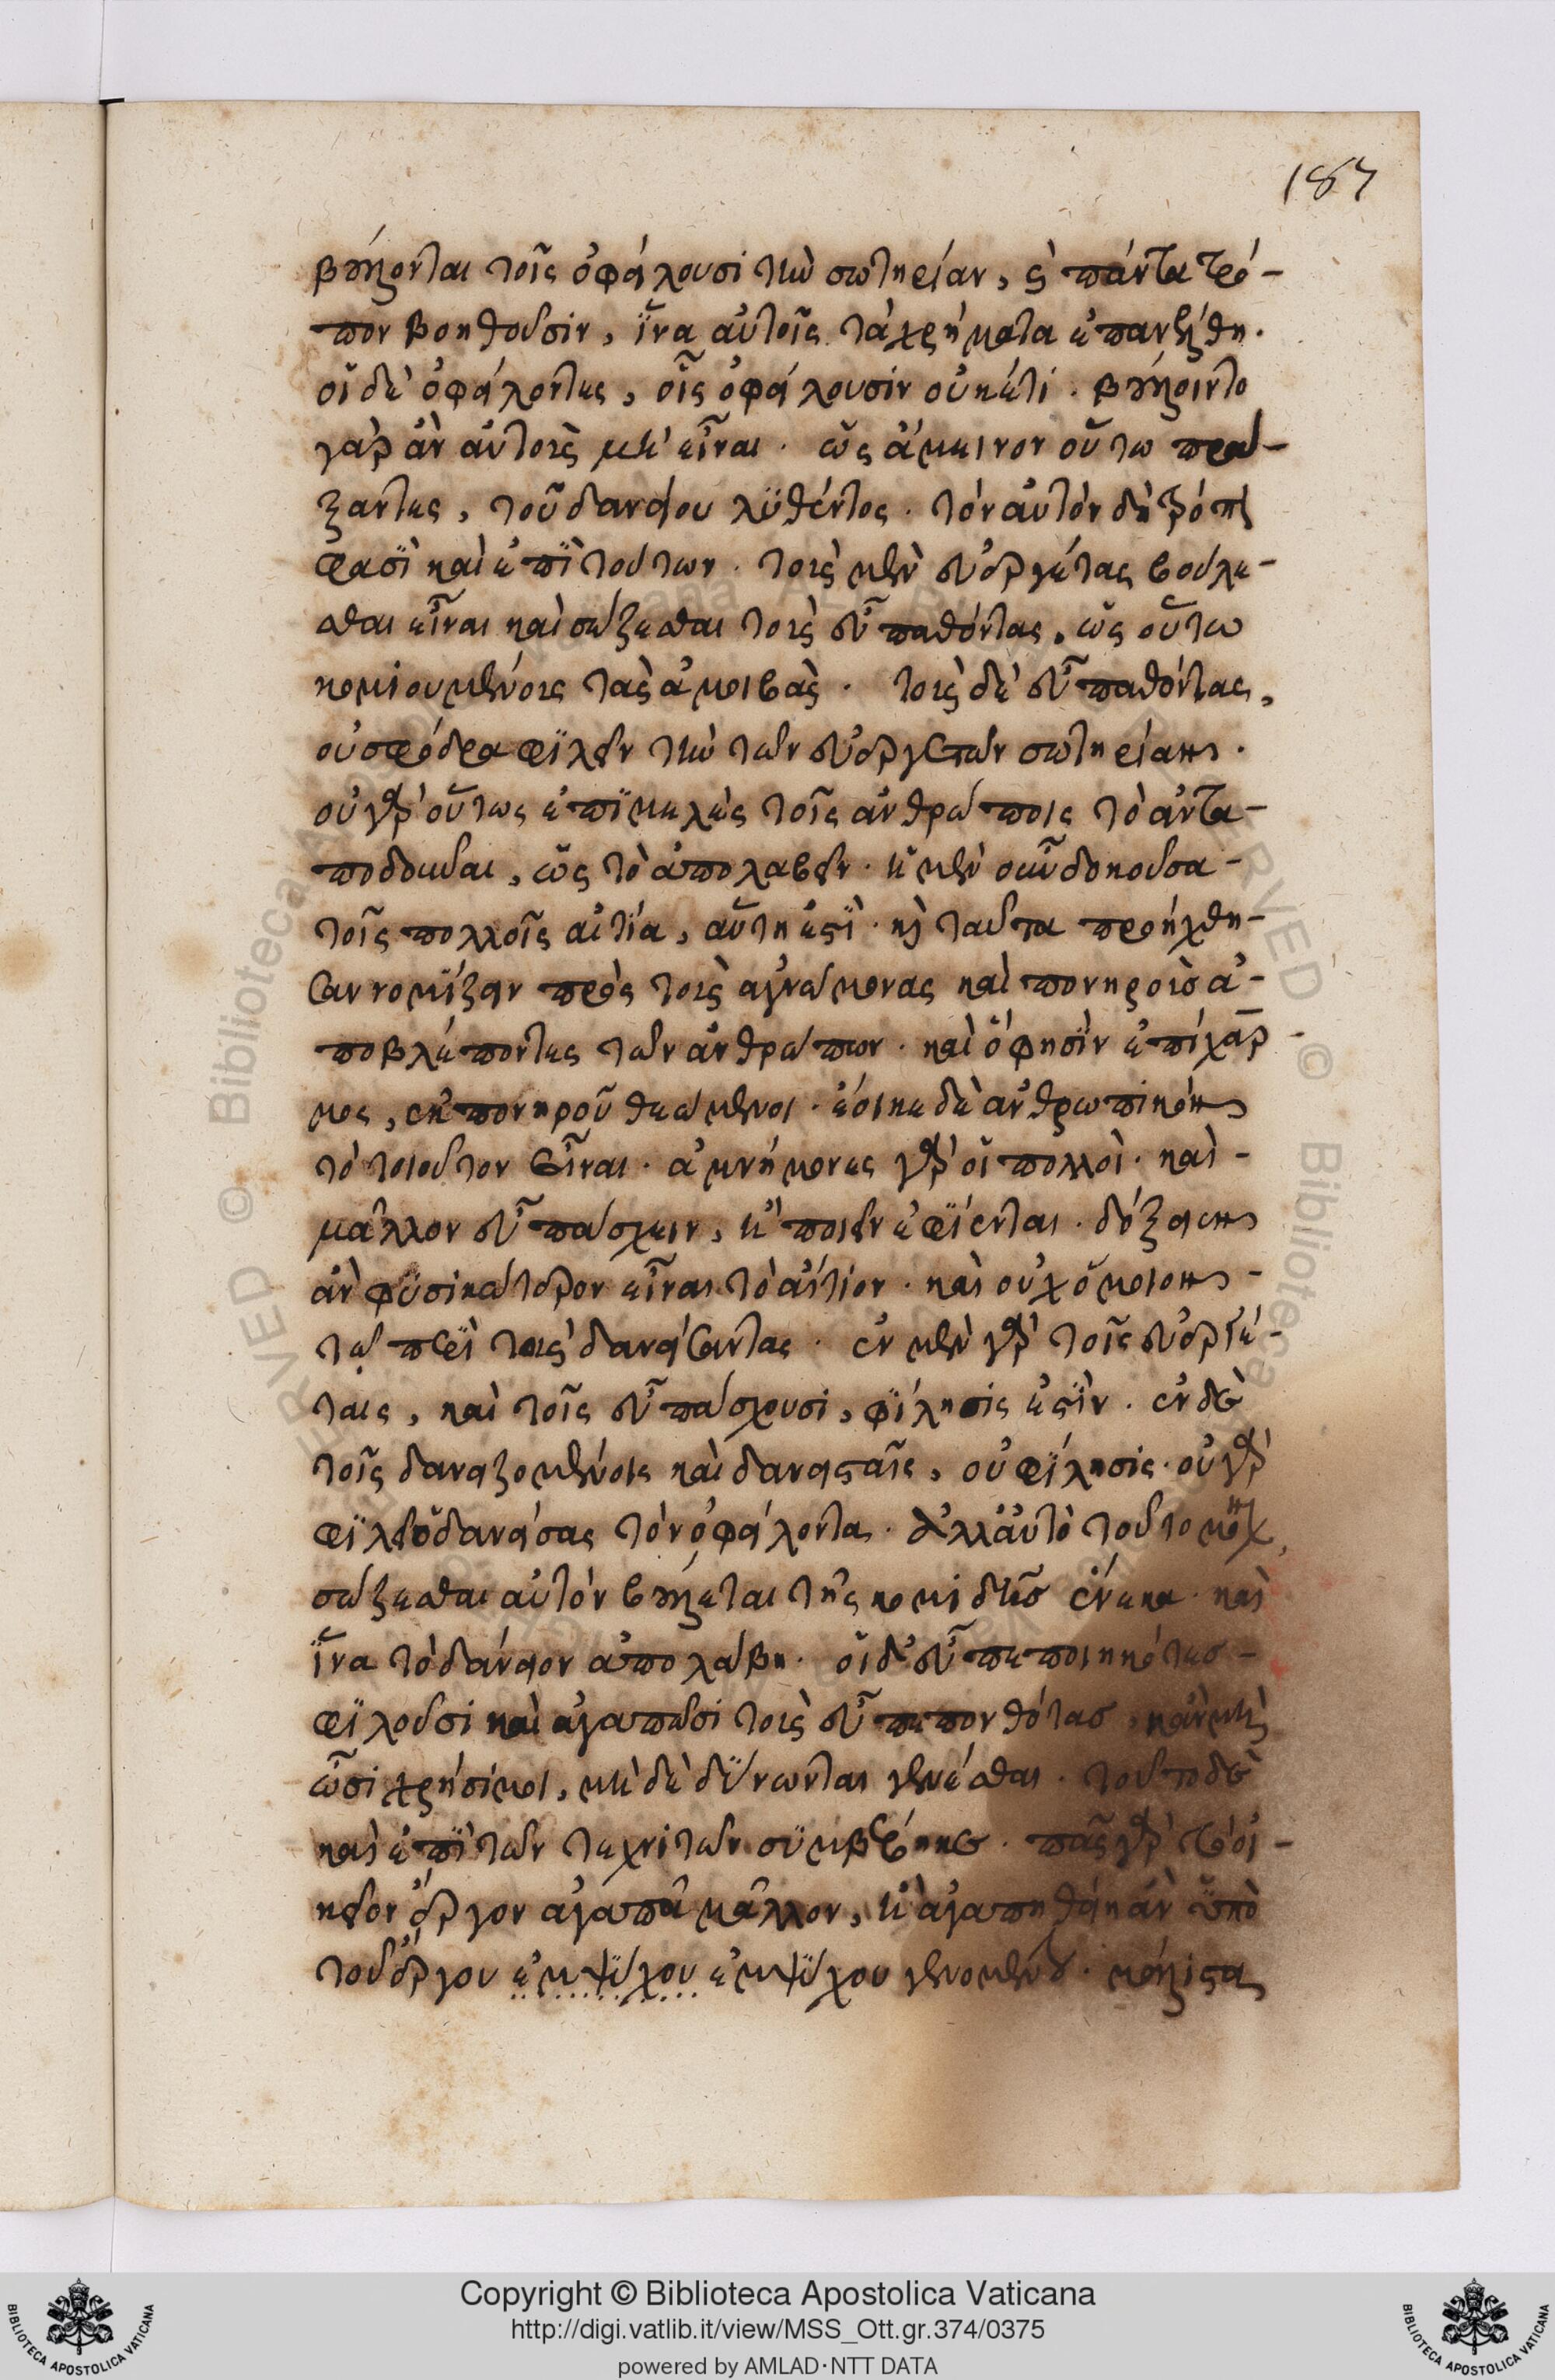 187
βούλονται τοῖς ὀφείλουσι τὴν σωτηρίαν, καὶ πάντα τρό-
πον βοηθοῦσιν, ἵνα αὐτοῖς τὰ χρήματα ἐπανέλθη.
οἱ δὲ ὀφείλοντες, οἷς ὀφείλουσιν οὐκέτι. βούλοιντο
γὰρ ἂν αὐτοὺς μὴ εἶναι. ὡς ἄμεινον οὕτω πρά-
ξαντες, τοῦ δανείου λυθέντος. τὸν αὐτὸν δὴ τρόπον
φασὶ καὶ ἐπὶ τούτων. τοὺς μὲν εὐεργέτας βούλε-
σθαι εἶναι καὶ σώζεσθαι τοὺς εὖ παθόντας, ὡς οὕτω
κομιουμένους τὰς ἀμοιβάς. τοὺς δὲ εὖ παθόντας,
οὐ σφόδρα φιλεῖν τὴν τῶν εὐεργετῶν σωτηρίαν.
οὐ γὰρ οὕτως ἐπιμελὲς τοῖς ἀνθρώποις τὸ ἀντα-
ποδοῦναι, ὡς τὸ ἀπολαβεῖν. ἡ μὲν οὖν δοκοῦσα-
τοῖς πολλοῖς αἰτία, αὕτη ἐστί. καὶ ταῦτα προήχθη-
σαν νομίζειν πρὸς τοὺς ἀγνώμονας καὶ πονηροὺς ἀ-
ποβλέποντες τῶν ἀνθρώπων. καὶ ὅ φησιν ἐπίχαρ
μος, ἐκ πονηροῦ θεώμενοι. ἔοικε δὲ ἀνθρωπικὸν
τὸ τοιοῦτον εἶναι. ἀμνήμονες γὰρ οἱ πολλοί. καὶ-
μᾶλλον εὖ πάσχειν, ἢ ποιεῖν ἐφίενται. δόξειεν
ἂν φυσικώτερον εἶναι τὸ αἴτιον. καὶ οὐχ ὅμοιον-
τῷ περὶ τοὺς δανείσαντας. ἐν μὲν γὰρ τοῖς εὐεργέ-
ταις, καὶ τοῖς εὖ πάσχουσι, φίλησίς ἐστιν. ἐν δὲ
τοῖς δανειζομένοις καὶ δανεισταῖς, οὐ φίλησις. οὐ γὰρ
φιλεῖ ὁ δανείσας τὸν ὀφείλοντα. ἀλλ' αὐτὸ τοῦτο μόνον,
σώζεσθαι αὐτὸν βούλεται τῆς κομιδῆς ἕνεκα. καὶ
ἵνα τὸ δάνειον ἀπολάβη. οἱ δ' εὖ πεποιηκότες-
φιλοῦσι καὶ ἀγαπῶσι τοὺς εὖ πεπονθότας, κἂν μὴ
ὦσι χρήσιμοι, μὴ δὲ δύνωνται γενέσθαι. τοῦτο δὲ
καὶ ἐπὶ τῶν τεχνιτῶν συμβέβηκε. πᾶς γὰρ τὸ οἰ-
κεῖον ἔργον ἀγαπᾶ μᾶλλον, ἢ ἀγαπηθείη ἂν ὑπὸ
τοῦ ἔργου ἐμψύχου ἐμψύχου γενομένου. μάλιστα
Copyright © Biblioteca Apostolica Vaticana
http://digi.vatlib.it/view/MSS_Ott.gr.374/0375
powered by AMLAD·NTT DATA
BIBLIOTECA APOSTOLICA VATICANA
BIBLIOTECA APOSTOLICA VATICANA